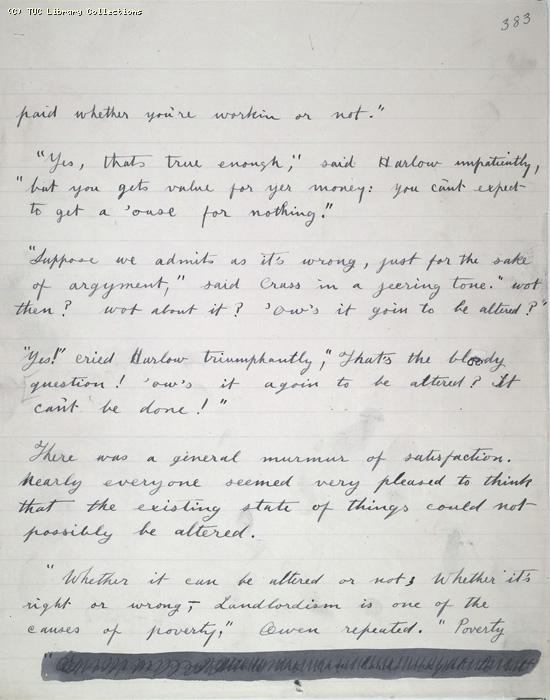 (C) TUC Library Collections
383
paid whether you're workin or not."
"Yes, thats true enough," said Harlow impatiently,
"but you gets value for yer money: you cant expect
to get a 'ouse for nothing."
"Suppose we admits as it's wrong, just for the sake
of argyment," said Crass in a jeering tone." wot
then? wot about it? 'Ow's it goin to be altered?"
"Yes!" cried Harlow triumphantly," That's the bloody
question! 'ow's it agoin to be altered? It
cant be done!"
There was a general murmur of satisfaction.
Nearly everyone seemed very pleased to think
that the existing state of things could not
possibly be altered.
"Whether it can be altered or not, Whether it's
right or wrong, Landlordism is one of the
causes of poverty," Owen repeated. "Poverty